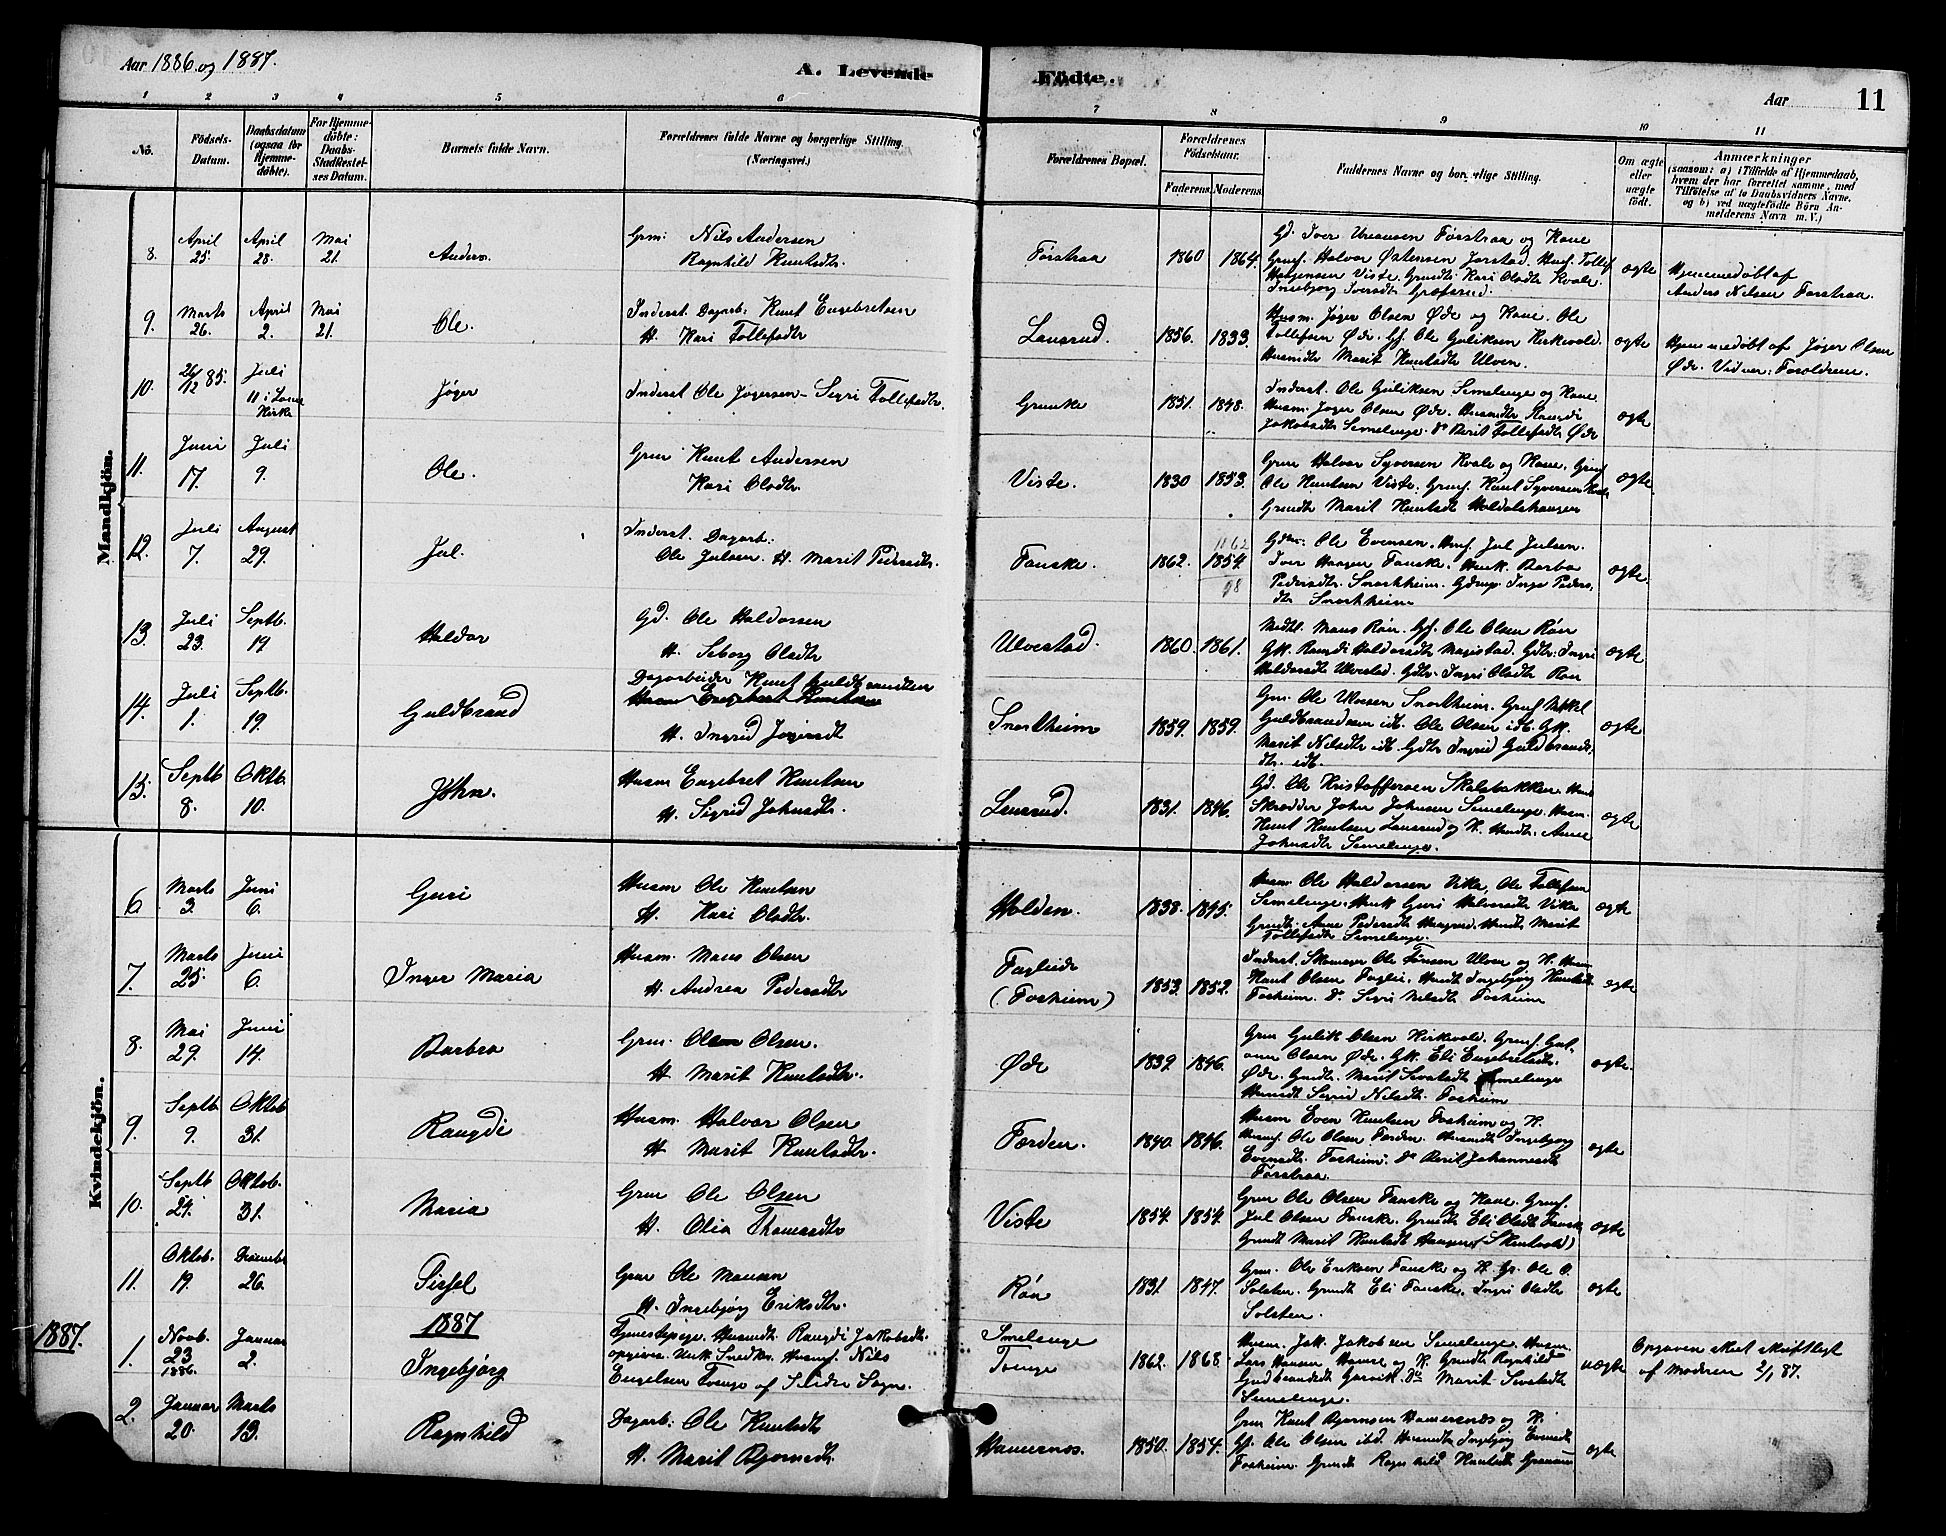 Aar 1886 og 1887.
A. Levende Fødte.
Aar 11
1 2 3 4 5 6 7 8 9 10 11
No.
Fødsels-Datum.
Daabsdatum (ogsaa for Hjemme-døbte).
For Hjemme-døbte: Daabs-Stadfæstel-ses Datum.
Barnets fulde Navn.
Forældrenes fulde Navne og borgerlige Stilling. (Næringsvei.)
Forældrenes Bopæl.
Forældrenes Fødselsaar.
Faderens. Moderens.
Faddernes Navne og borgerlige Stilling.
Om ægte eller uægte født.
Anmærkninger (saasom: a) i Tilfælde af Hjemmedaab, hvem der har forrettet samme, med Tilføielse af to Daabsvidners Navne, og b) ved uægtefødte Børn An-melderens Navn m. V.)
Mandkjön.
8. April 25. April 28. Mai 21. Anders. Grm: Nils Andersen
Ragnhild Knutsdtr.
Førstraa 1860 1864.
Gd. Iver Førstraa og Kone
Ingebjørg Iversdtr
ægte
Hjemmedøbt af
Anders Nilsen Førstraa.
9. Marts 26. April 2. Mai 21. Ole. Inderst. Dagarb: Knut Engebretsen
H. Kari Tollefsdtr
Lausrud. 1856. 1833.
Husm. Jøger Olsen Øde og Kone. Ole
Tollefsen Øde. Gf. Ole Guliksen Kirkevold.
Husmdtr Marit Knutsdtr Ulven.
ægte
Hjemmedøbt af Jøger Olsen
Øde. Vidner: Forældrene.
10. 26/12 85. Juli 11 i Lome Kirke Jøger Inderst Ole Jøgersen - Sigri Tollefsdtr.
Grunke 1851. 1848.
Inderst. Ole Guliksen Semelenge og Kone
Husm. Jøger Olsen Øde. Husmdtr Rangdi
Jakobsdtr Semelenge. Do Berit Tollefsdtr Øde
ægte
11. Juni 17. Juli 9. Ole. Grm Knut Andersen
Kari Olsdtr.
Viste. 1830 1853.
Grm Halvor Syversen Kvale og Kone. Grmf.
Ole Knutsen Viste. Grmf. Knut Syversen Kvale
Grmdtr Marit Knutsdtr Haldalshaugen
ægte.
12. Juli 7. August 29. Jul. Inderst. Dagarb:
Ole Julsen. H. Marit Pedersdtr.
Fauske. 1862. 1862 1854. 98
Gdm: Ole Evensen. Hmf. Jul Julsen.
Iver Haagen Fauske. Hmk. Barbo
Pedersdtr. Snortheim. Inga Peders-
dtr Snortheim
ægte.
13. Juli 23. Septb. 19 Haldor Gd. Ole Haldorsen
H. Siborg Olsdtr
Ulvestad. 1860. 1861.
Mons Røn. Gf. Ole Olsen Røn
Gk. Rangdi Haldorsdtr Magistad. Gdtr: Ingri
Haldorsdtr Ulvestad. Gdtr. Ingri Olsdtr Røn
ægte
14. Juli 1. Septb. 19. Guldbrand Dagarbeider Knut Guldbrandsen
H. Ingrid Jøgersdt
Snortheim 1859. 1859.
Grm. Ole Olsen Snortheim. Grmf Mikkel
Guldbrandsen ib. Ole Olsen ib. Gk.
Marit Nilsdtr ib. Gdtr Ingrid Guldbrands-
dtr. ib.
ægte
15. Septb 8. Oktb. 10. John. Husm Engebret Knutsen
H. Sigrid Johnsdtr.
Lausrud. 1831. 1846.
Gd. Ole Kristoffersen Skalsbakken.
Skrædder John Johnsen Semelenge. Husm.
Knut Knutsen Lausrud og K. Hmdtr. Anne
Johnsdtr Semelenge.
ægte
Kvindekjön.
6. Marts 3. Juni 6. Guri Husm Ole Knutsen
H. Kari Olsdtr.
Holden. 1838. 1845.
Husm Ole Haldorsen Vika, Ole Tollefsen
Semelenge. Hmk Guri Halvorsdtr Vika
Grmdtr. Anne Pedersdtr Haugrud. Hmdtr Marit
Tollefsdtr Semelenge.
ægte
7. Marts 25. Juni 6. Inger Maria Husm. Mons Olsen
H. Andrea Pedersdtr
Faglide
(Fosheim) 1853. 1852.
Inderst. Skomager Ole Tønsen Ulven og K. Husm
Knut Olsen Faglie. Hmdtr Ingebjørg Knutsdtr
Fosheim. Do Sigri Nilsdtr Fosheim
ægte
8. Mai 29. Juni 14. Barbro Grm. Olsen Olsen.
H. Marit Knutsdtr.
Øde 1839 1846.
Grm Gulik Olsen Kirkevold. Grmf. Gul-
Olsen Øde. Gk. Eli Engebretsdtr.
Øde. Grmdtr. Marit Sivertsdtr Semelenge
Husmdtr Sigrid Nilsdtr. Fosheim
ægte.
9. Septb 9. Oktob 31. Rangdi Husm. Halvor Olsen
H. Marit Knutsdtr.
Førden. 1840. 1846.
Husm Even Knutsen Fosheim og K.
Husmf. Ole Olsen Førden. Husmdtr Ingebjørg
Evensdtr. Fosheim. Do Berit Johannesdtr
Førstraa
ægte
10. Septb 24. Oktob. 31. Maria Grm Ole Olsen
H. Olia Thomasdtr
Viste 1854. 1854.
Grm Ole Olsen Fauske og Kone. Grmf.
Jul Olsen Fauske. Grmdtr Eli Olsdtr Fauske
Grmdt Marit Knutsdt Haagens
ægte
11. Oktob. 19. December 26. Sissel Grm Ole Monsen
H. Ingebjørg Eriksdtr.
Røn 1831. 1847.
Grm. Ole Eriksen Fauske og K. Gf. Ole O.
Solsten. Grmdt Eli Fauske. Ingri Olsdtr
Solsten.
ægte
1887. 1887
1. Novb. 23 1886. Januar 2. Ingebjørg Tjenestepige. Husmdtr. Rangdi Jakobsdtr.
opgiver. Unk. Snedker. Husmf. Nils
Engelsen Tvenge af Slidre Sogn.
Smelenge
Tvenge 1862. 1868.
Husm. Jak. Jakobsen Semelenge. Husm.
Lars Hansen Hamre og K. Grmdtr Ragnhild
Gudbrandsdtr Garvik. Do Marit Sivertsdtr
Semelenge.
uægte
Opgaven sket skriftligt
af Moderen 2/1 87.
2. Januar 20. Marts 13. Ragnhild Dagarb: Ole Knutsdtr
H. Marit Bjørnsdtr.
Hamernæs. 1850. 1854.
Grm Knut Bjørnsen Hamersnæs og K.
Gf. Ole Olsen ibd. Husmdtr Ingebjørg Evensdtr
Fosheim. Grmdtr Ragnhild Knutsdtr
ægte